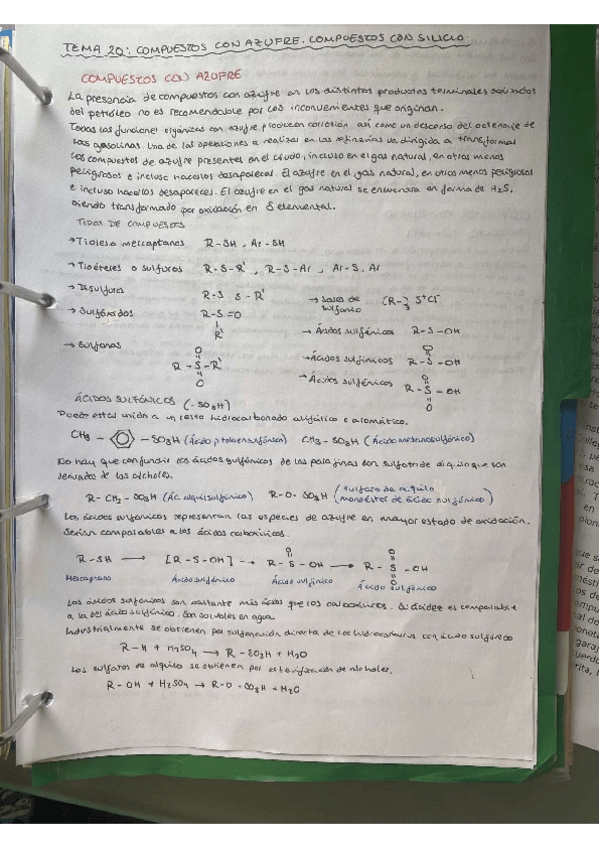 TEMA 20: COMPUESTOS CON AZUFRE. COMPUESTOS CON SILICIO
COMPUESTOS CON AZUFRE
La presencia de compuestos con azufre en los distintos productos terminales derivados
del petróleo no es recomendable por los inconvenientes que originan.
Todas las funciones orgánicas con azufre producen corrosión así como un descenso del octanaje de
las gasolinas. Una de las operaciones a realizar en las refinerías va dirigida a transformar
los compuestos de azufre presentes en el crudo, incluso en el gas natural, en otros menos
peligrosos e incluso hacerlos desaparecer. El azufre en el gas natural, en otros menos peligrosos
e incluso hacerlos desaparecer. El azufre en el gas natural se encuentra en forma de H₂S,
siendo transformado por oxidación en S elemental.
TIPOS DE COMPUESTOS
→ Tioles o mercaptanos R-SH, Ar-SH
→ Tioéteres o sulfuros R-S-R', R-S-Ar, Ar-S.Ar
→ Disulfuros R-S.S-R'
→ Sales de sulfonio (R-)₃ S⁺Cl⁻
→ Sulfóxidos R-S=O
R'
→ Ácidos sulfénicos R-S-OH
→ Sulfonas R-S-R'
O
O
→ Ácidos sulfínicos R-S-OH
O
→ Ácidos sulfónicos R-S-OH
O
O
ÁCIDOS SULFÓNICOS (-SO₃H)
Puede estar unido a un resto hidrocarbonado alifático o aromático.
CH₃- -SO₃H (Ácido p.toluensulfónico) CH₃-SO₃H (Ácido metanosulfónico)
No hay que confundir los ácidos sulfónicos de las parafinas con sulfato de alquilo que son
derivados de los alcoholes.
R-CH₂-SO₃H (Ác. alquilsulfónico) R-O-SO₃H (sulfato de alquilo
monoéster de ácido sulfónico)
Los ácidos sulfónicos representan las especies de azufre en mayor estado de oxidación.
Serían comparables a los ácidos carboxílicos.
R-SH → [R-S-OH] → R-S-OH → R-S-OH
O
O
O
Mercaptano Ácido sulfénico Ácido sulfínico Ácido sulfónico
Los ácidos sulfónicos son bastante más ácidos que los carboxílicos. Su acidez es comparable
a la del ácido sulfúrico. Son solubles en agua.
Industrialmente se obtienen por sulfonación directa de los hidrocarburos con ácido sulfúrico
R-H + H₂SO₄ → R-SO₃H + H₂O
Los sulfatos de alquilo se obtienen por esterificación de alcoholes.
R-OH + H₂SO₄ → R-O-SO₃H + H₂O